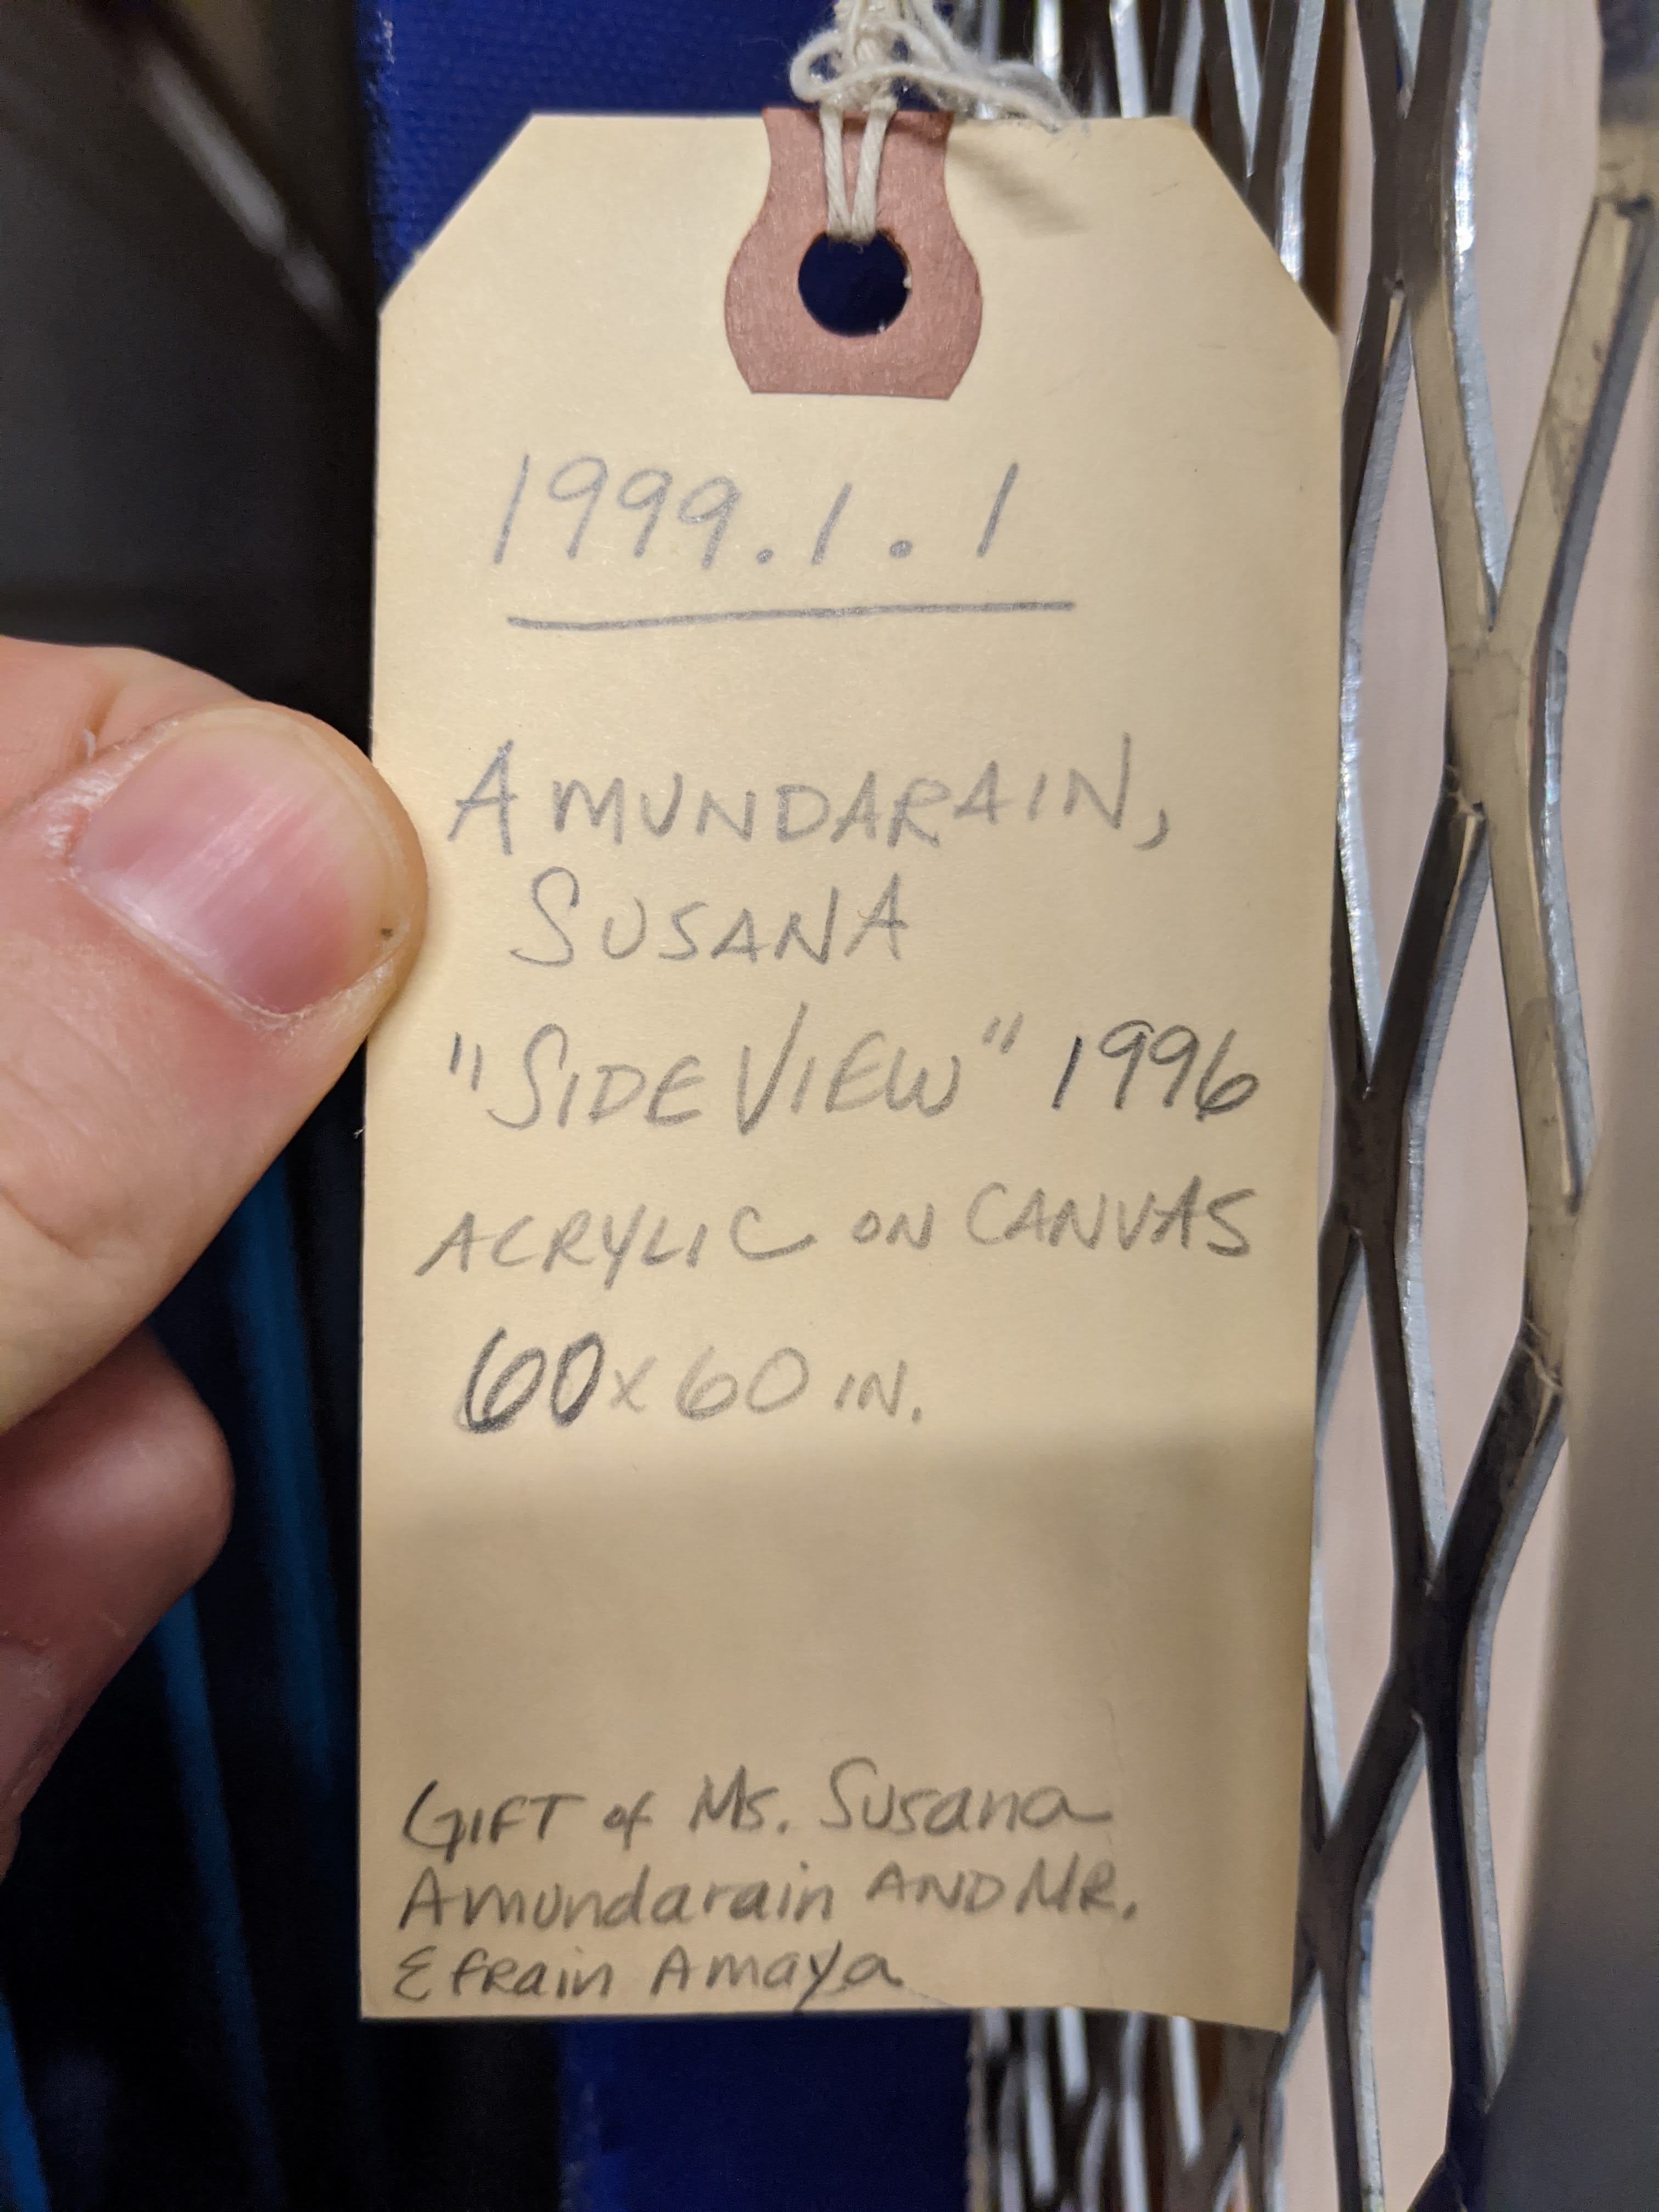 1999.1.1
AMUNDARAIN,
SUSANA
"SIDE VIEW" 1996
ACRYLIC ON CANVAS
60 x 60 IN.
GIFT of Ms. Susana
Amundarain AND MR.
Efrain Amaya